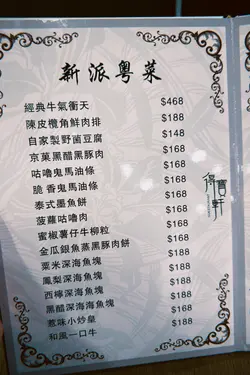 新派粵菜
經典牛氣衝天 $468
陳皮欖角鮮肉排 $188
自家製野菌豆腐 $148
京菓黑醋黑豚肉 $168
咕嚕鬼馬油條 $168
脆香鬼馬油條 $168
泰式墨魚餅 $168
菠蘿咕嚕肉 $168
蜜椒薯仔牛柳粒 $168
金瓜銀魚蒸黑豚肉餅 $168
粟米深海魚塊 $188
鳳梨深海魚塊 $168
西檸深海魚塊 $168
黑醋深海海魚塊 $168
惹味小炒皇 $168
和風一口牛 $188
得寶軒